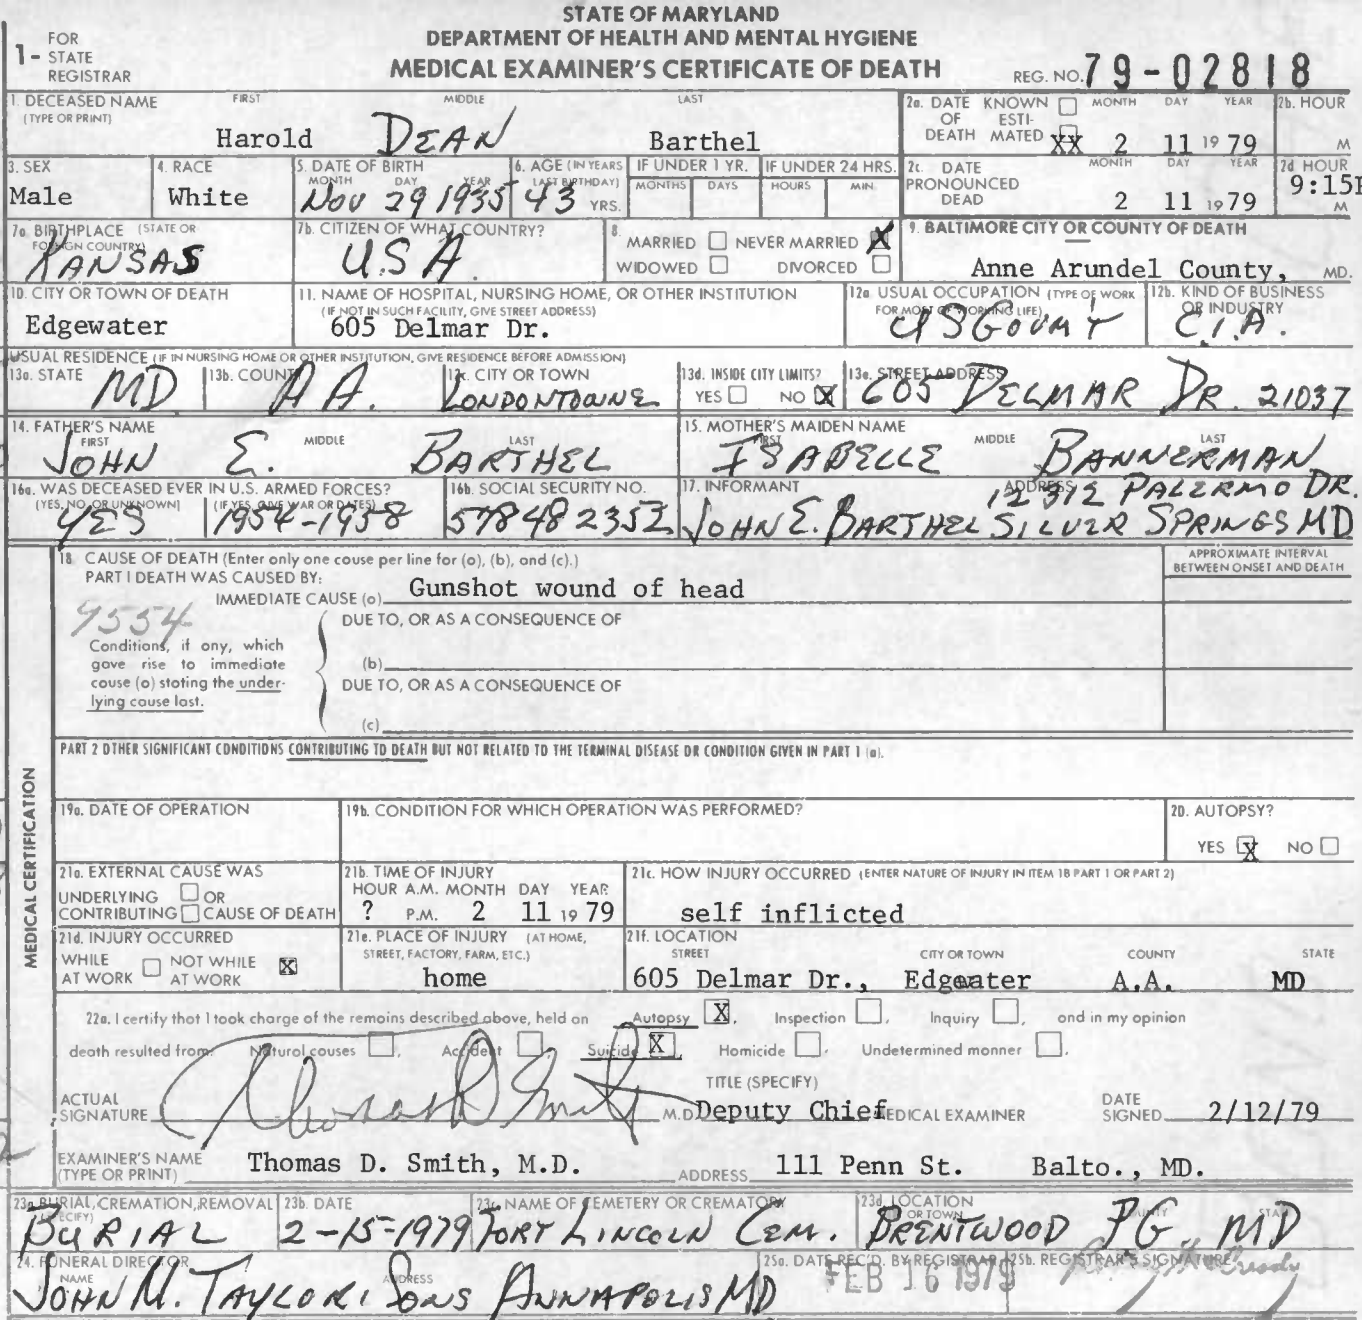 STATE OF MARYLAND
DEPARTMENT OF HEALTH AND MENTAL HYGIENE
MEDICAL EXAMINER'S CERTIFICATE OF DEATH
1- FOR STATE REGISTRAR
REG. NO. 79-02818
1. DECEASED NAME (TYPE OR PRINT) FIRST MIDDLE LAST
Harold DEAN Barthel
2a. DATE OF DEATH KNOWN ☐ ESTIMATED XX MONTH DAY YEAR 2 11 19 79
2b. HOUR M
3. SEX Male
4. RACE White
5. DATE OF BIRTH MONTH DAY YEAR Nov 29 1935
6. AGE (IN YEARS LAST BIRTHDAY) 43 YRS.
IF UNDER 1 YR. MONTHS DAYS
IF UNDER 24 HRS. HOURS MIN.
2c. DATE PRONOUNCED DEAD MONTH DAY YEAR 2 11 19 79
2d HOUR 9:15P M
7a. BIRTHPLACE (STATE OR FOREIGN COUNTRY) KANSAS
7b. CITIZEN OF WHAT COUNTRY? U.S.A.
8. MARRIED ☐ NEVER MARRIED X
WIDOWED ☐ DIVORCED ☐
9. BALTIMORE CITY OR COUNTY OF DEATH
Anne Arundel County, MD.
10. CITY OR TOWN OF DEATH
Edgewater
11. NAME OF HOSPITAL, NURSING HOME, OR OTHER INSTITUTION
(IF NOT IN SUCH FACILITY, GIVE STREET ADDRESS)
605 Delmar Dr.
12a. USUAL OCCUPATION (TYPE OF WORK FOR MOST OF WORKING LIFE) US GOVMT
12b. KIND OF BUSINESS OR INDUSTRY C.I.A.
USUAL RESIDENCE (IF IN NURSING HOME OR OTHER INSTITUTION, GIVE RESIDENCE BEFORE ADMISSION)
13a. STATE MD
13b. COUNTY A.A.
13c. CITY OR TOWN LONDONTOWNE
13d. INSIDE CITY LIMITS? YES ☐ NO X
13e. STREET ADDRESS 605 DELMAR DR. 21037
14. FATHER'S NAME FIRST MIDDLE LAST
JOHN E. BARTHEL
15. MOTHER'S MAIDEN NAME FIRST MIDDLE LAST
ISABELLE BANNERMAN
16a. WAS DECEASED EVER IN U.S. ARMED FORCES?
(YES, NO, OR UNKNOWN) (IF YES, GIVE WAR OR DATES)
YES 1954-1958
16b. SOCIAL SECURITY NO.
578482352
17. INFORMANT ADDRESS
12312 PALERMO DR.
JOHN E. BARTHEL SILVER SPRINGS MD
18. CAUSE OF DEATH (Enter only one cause per line for (a), (b), and (c).)
APPROXIMATE INTERVAL BETWEEN ONSET AND DEATH
PART I DEATH WAS CAUSED BY:
IMMEDIATE CAUSE (a) Gunshot wound of head
9554
DUE TO, OR AS A CONSEQUENCE OF
Conditions, if any, which
gave rise to immediate
cause (a) stating the under-
lying cause last.
(b)
DUE TO, OR AS A CONSEQUENCE OF
(c)
PART 2 OTHER SIGNIFICANT CONDITIONS CONTRIBUTING TO DEATH BUT NOT RELATED TO THE TERMINAL DISEASE OR CONDITION GIVEN IN PART 1 (a).
MEDICAL CERTIFICATION
19a. DATE OF OPERATION
19b. CONDITION FOR WHICH OPERATION WAS PERFORMED?
20. AUTOPSY?
YES X NO ☐
21a. EXTERNAL CAUSE WAS
UNDERLYING ☐ OR
CONTRIBUTING ☐ CAUSE OF DEATH
21b. TIME OF INJURY
HOUR A.M. MONTH DAY YEAR
? P.M. 2 11 19 79
21c. HOW INJURY OCCURRED (ENTER NATURE OF INJURY IN ITEM 18 PART 1 OR PART 2)
self inflicted
21d. INJURY OCCURRED
WHILE AT WORK ☐ NOT WHILE AT WORK X
21e. PLACE OF INJURY (AT HOME, STREET, FACTORY, FARM, ETC.)
home
21f. LOCATION
STREET CITY OR TOWN COUNTY STATE
605 Delmar Dr., Edgewater A.A. MD
22a. I certify that I took charge of the remains described above, held on Autopsy X, Inspection ☐, Inquiry ☐, and in my opinion
death resulted from: Natural causes ☐, Accident ☐, Suicide X, Homicide ☐, Undetermined manner ☐.
ACTUAL SIGNATURE Thomas D Smith M.D.
TITLE (SPECIFY) Deputy Chief MEDICAL EXAMINER
DATE SIGNED 2/12/79
EXAMINER'S NAME (TYPE OR PRINT) Thomas D. Smith, M.D.
ADDRESS 111 Penn St. Balto., MD.
23a. BURIAL, CREMATION, REMOVAL (SPECIFY) BURIAL
23b. DATE 2-15-1979
23c. NAME OF CEMETERY OR CREMATORY FORT LINCOLN CEM.
23d. LOCATION CITY OR TOWN COUNTY STATE
BRENTWOOD P.G. MD
24. FUNERAL DIRECTOR NAME ADDRESS
JOHN M. TAYLOR & SONS ANNAPOLIS MD
25a. DATE REC'D. BY REGISTRAR FEB 16 1979
25b. REGISTRAR'S SIGNATURE